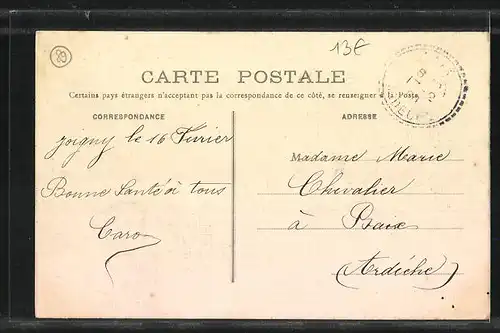 89
13€
CARTE POSTALE
Certains pays étrangers n'acceptant pas la correspondance de ce côté, se renseigner à la Poste
CORRESPONDANCE
ADRESSE
Joigny le 16 Février
Bonne Santé à tous
Caro
Madame Marie
Chevalier
à Baix
(Ardèche)